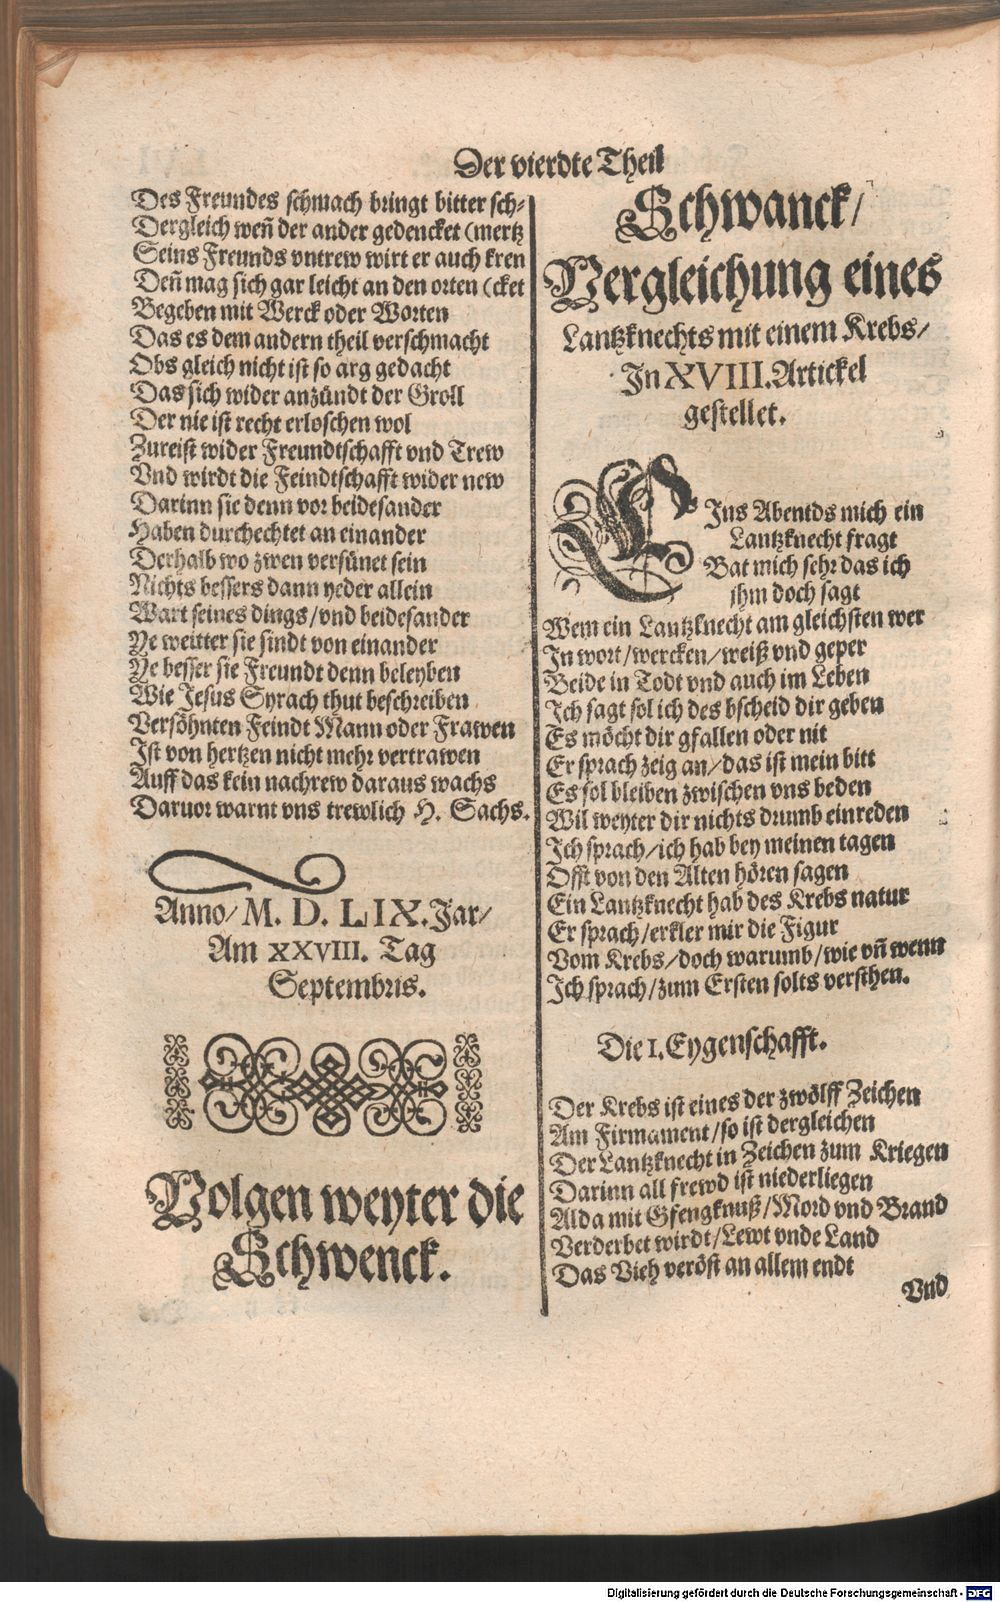 Der vierdte Theil
Des Freundes schmach bringt bitter sch⸗
Dergleich weñ der ander gedencket (mertz
Seins Freunds vntrew wirt er auch kren
Deñ mag sich gar leicht an den orten (cket
Begeben mit Werck oder Worten
Das es dem andern theil verschmacht
Obs gleich nicht ist so arg gedacht
Das sich wider anzündt der Groll
Der nie ist recht erloschen wol
Zureist wider Freundtschafft vnd Trew
Vnd wirdt die Feindtschafft wider new
Darinn sie denn vor beidesander
Haben durchechtet an einander
Derhalb wo zwen versünet sein
Nichts bessers dann yeder allein
Wart seines dings/vnd beidesander
Ye weitter sie sindt von einander
Ye besser sie Freundt denn beleyben
Wie Jesus Syrach thut beschreiben
Versöhnten Feindt Mann oder Frawen
Ist von hertzen nicht mehr vertrawen
Auff das kein nachrew daraus wachs
Daruor warnt vns trewlich H. Sachs.
Anno/ M. D. LIX. Jar/
Am XXVIII. Tag
Septembris.
Volgen weyter die
Schwenck.
Schwanck/
Vergleichung eines
Lantzknechts mit einem Krebs/
In XVIII. Artickel
gestellet.
EIns Abentds mich ein
Lantzknecht fragt
Bat mich sehr das ich
ihm doch sagt
Wem ein Lantzknecht am gleichsten wer
In wort/wercken/weiß vnd geper
Beide in Todt vnd auch im Leben
Ich sagt sol ich des bscheid dir geben
Es möcht dir gfallen oder nit
Er sprach zeig an/das ist mein bitt
Es sol bleiben zwischen vns beden
Wil weyter dir nichts drumb einreden
Ich sprach/ich hab bey meinen tagen
Offt von den Alten hören sagen
Ein Lantzknecht hab des Krebs natur
Er sprach/erkler mir die Figur
Vom Krebs/doch warumb/wie vñ wenn
Ich sprach/zum Ersten solts versthen.
Die I. Eygenschafft.
Der Krebs ist eines der zwölff Zeichen
Am Firmament/so ist dergleichen
Der Lantzknecht in Zeichen zum Kriegen
Darinn all frewd ist niederliegen
Alda mit Gfengknuß/Mord vnd Brand
Verderbet wirdt/Lewt vnde Land
Das Vieh veröst an allem endt
Vnd
Digitalisierung gefördert durch die Deutsche Forschungsgemeinschaft - DFG